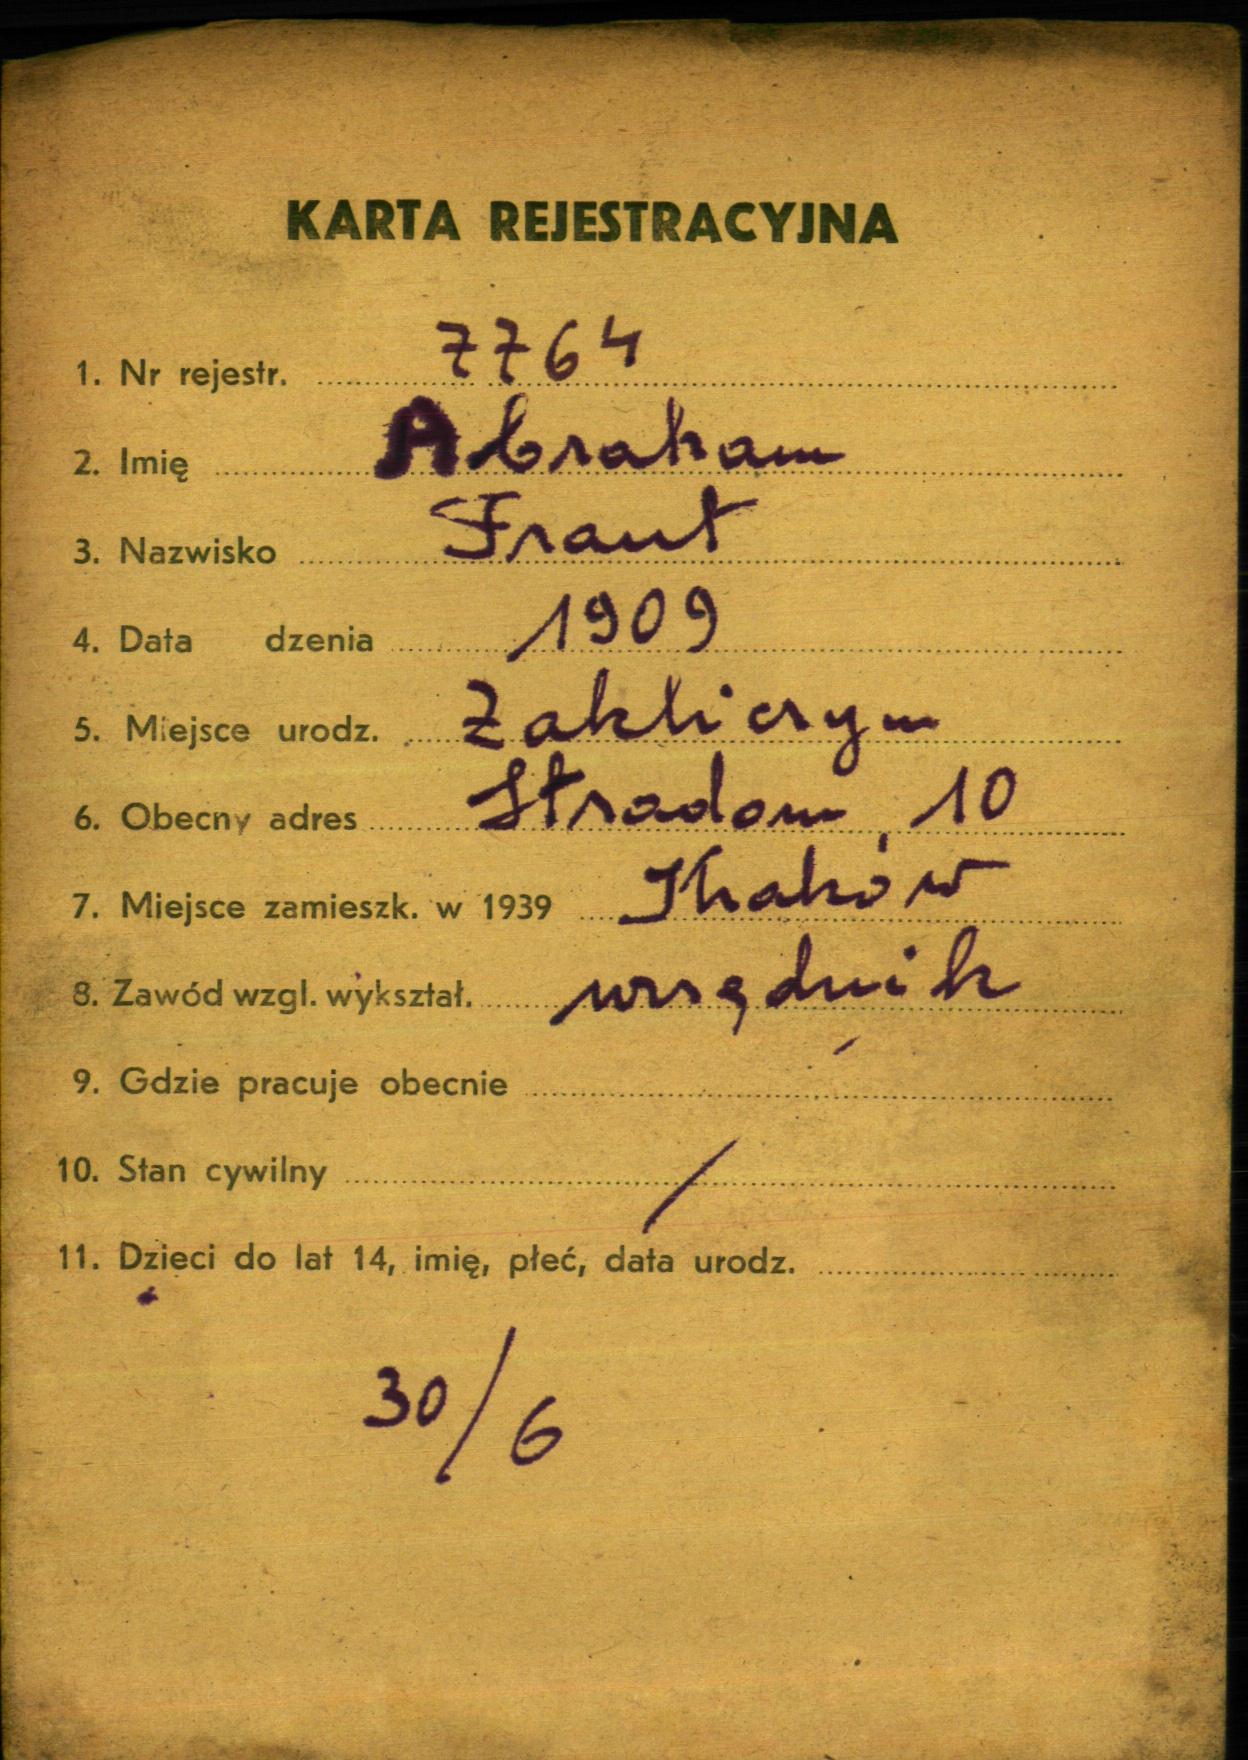 KARTA REJESTRACYJNA
1. Nr rejestr. 7764
2. Imię Abraham
3. Nazwisko Fraut
4. Data dzenia 1909
5. Miejsce urodz. Zakliczyn
6. Obecny adres Stradom 10
7. Miejsce zamieszk. w 1939 Kraków
8. Zawód wzgl. wykształ. urzędnik
9. Gdzie pracuje obecnie
10. Stan cywilny /
11. Dzieci do lat 14, imię, płeć, data urodz.
30/6